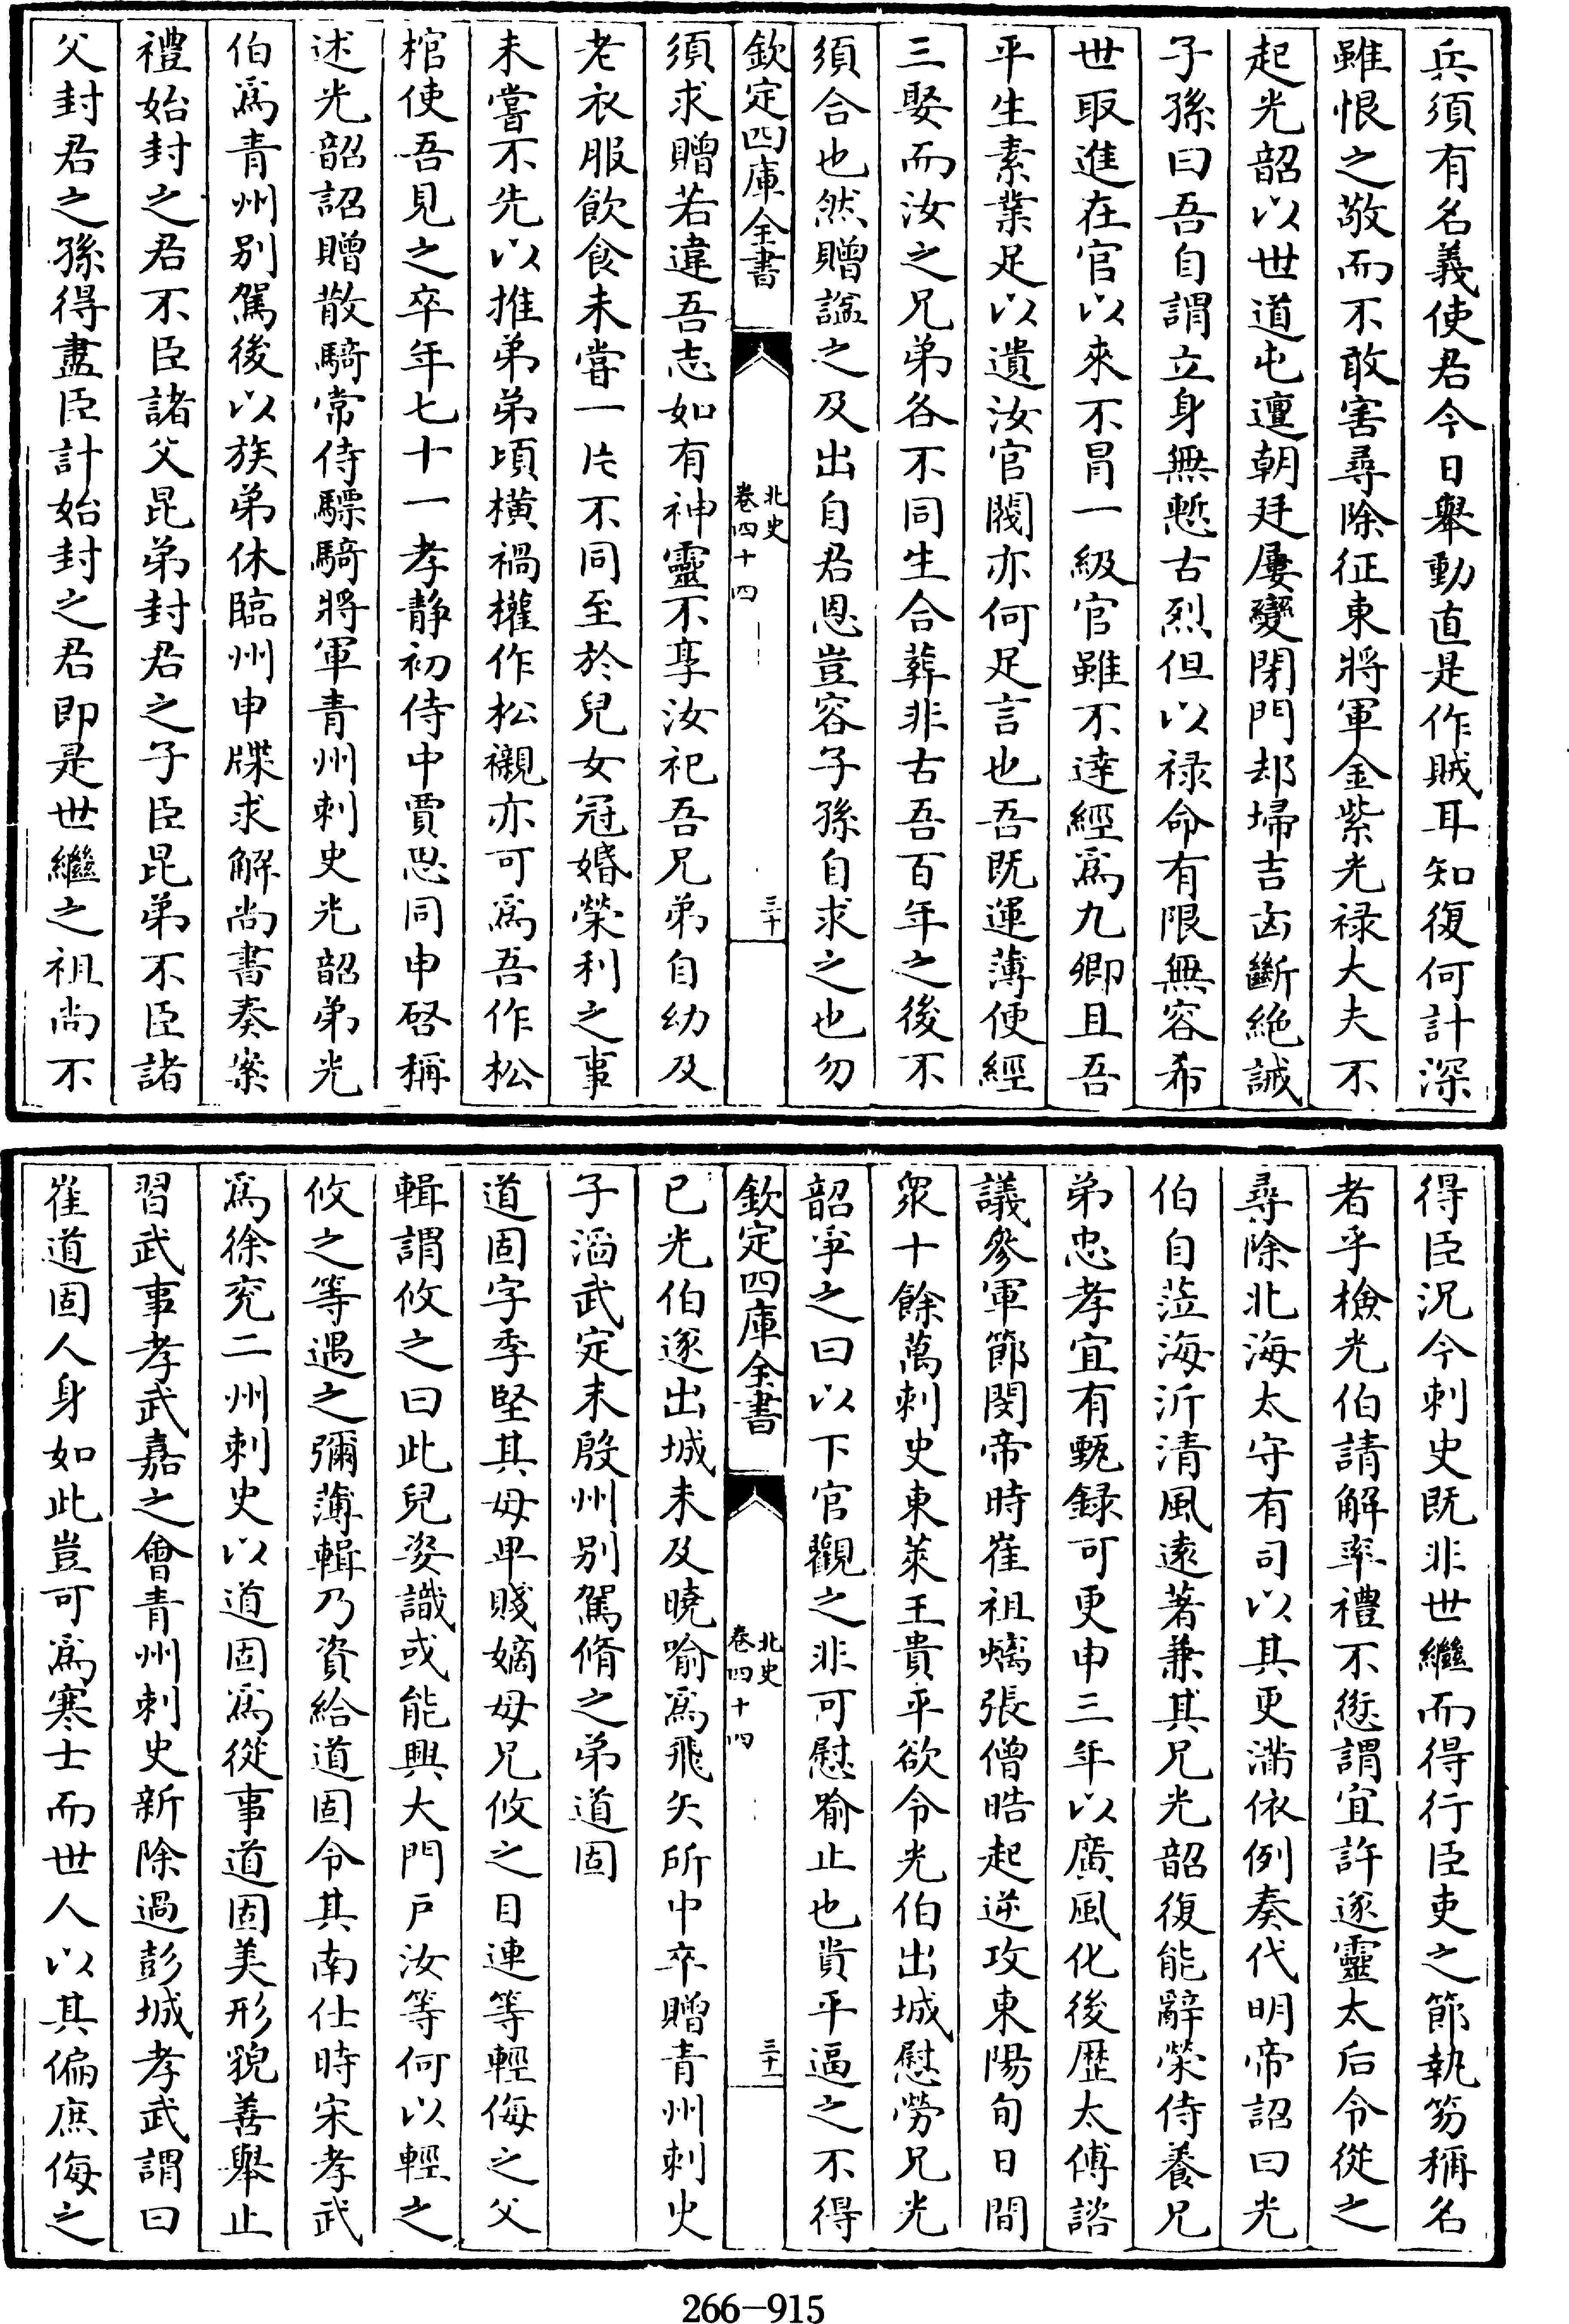 兵須有名義使君今日舉動直是作賊耳知復何計深
雖恨之敬而不敢害尋除征東將軍金紫光祿大夫不
起光韶以世道屯邅朝廷屢變閉門却埽吉凶斷絶誡
子孫曰吾自謂立身無慙古烈但以祿命有限無容希
世取進在官以來不冒一級官雖不達經爲九卿且吾
平生素業足以遺汝官閥亦何足言也吾既運薄便經
三娶而汝之兄弟各不同生合葬非古吾百年之後不
須合也然贈諡之及出自君恩豈容子孫自求之也勿
欽定四庫全書
北史
卷四十四
三十
須求贈若違吾志如有神靈不享汝祀吾兄弟自幼及
老衣服飲食未嘗一片不同至於兒女冠婚榮利之事
未嘗不先以推弟弟頃横禍權作松櫬亦可爲吾作松
棺使吾見之卒年七十一孝静初侍中賈思同申啓稱
述光韶詔贈散騎常侍驃騎將軍青州刺史光韶弟光
伯爲青州别駕後以族弟休臨州申牒求解尚書奏案
禮始封之君不臣諸父昆弟封君之子臣昆弟不臣諸
父封君之孫得盡臣計始封之君即是世繼之祖尚不
得臣況今刺史既非世繼而得行臣吏之節執笏稱名
者乎檢光伯請解率禮不愆謂宜許遂靈太后令從之
尋除北海太守有司以其更滿依例奏代明帝詔曰光
伯自莅海沂清風遠著兼其兄光韶復能辭榮侍養兄
弟忠孝宜有甄録可更申三年以廣風化後歷太傅諮
議參軍節閔帝時崔祖螭張僧晧起逆攻東陽旬日間
衆十餘萬刺史東萊王貴平欲令光伯出城慰勞兄光
韶爭之曰以下官觀之非可慰喻止也貴平逼之不得
欽定四庫全書
北史
卷四十四
三十一
已光伯遂出城未及曉喻爲飛矢所中卒贈青州刺史
子滔武定末殷州别駕脩之弟道固
道固字季堅其母卑賤嫡母兄攸之目連等輕侮之父
輯謂攸之曰此兒姿識或能興大門戶汝等何以輕之
攸之等遇之彌薄輯乃資給道固令其南仕時宋孝武
爲徐兖二州刺史以道固爲從事道固美形貌善舉止
習武事孝武嘉之會青州刺史新除過彭城孝武謂曰
崔道固人身如此豈可爲寒士而世人以其偏庶侮之
266-915